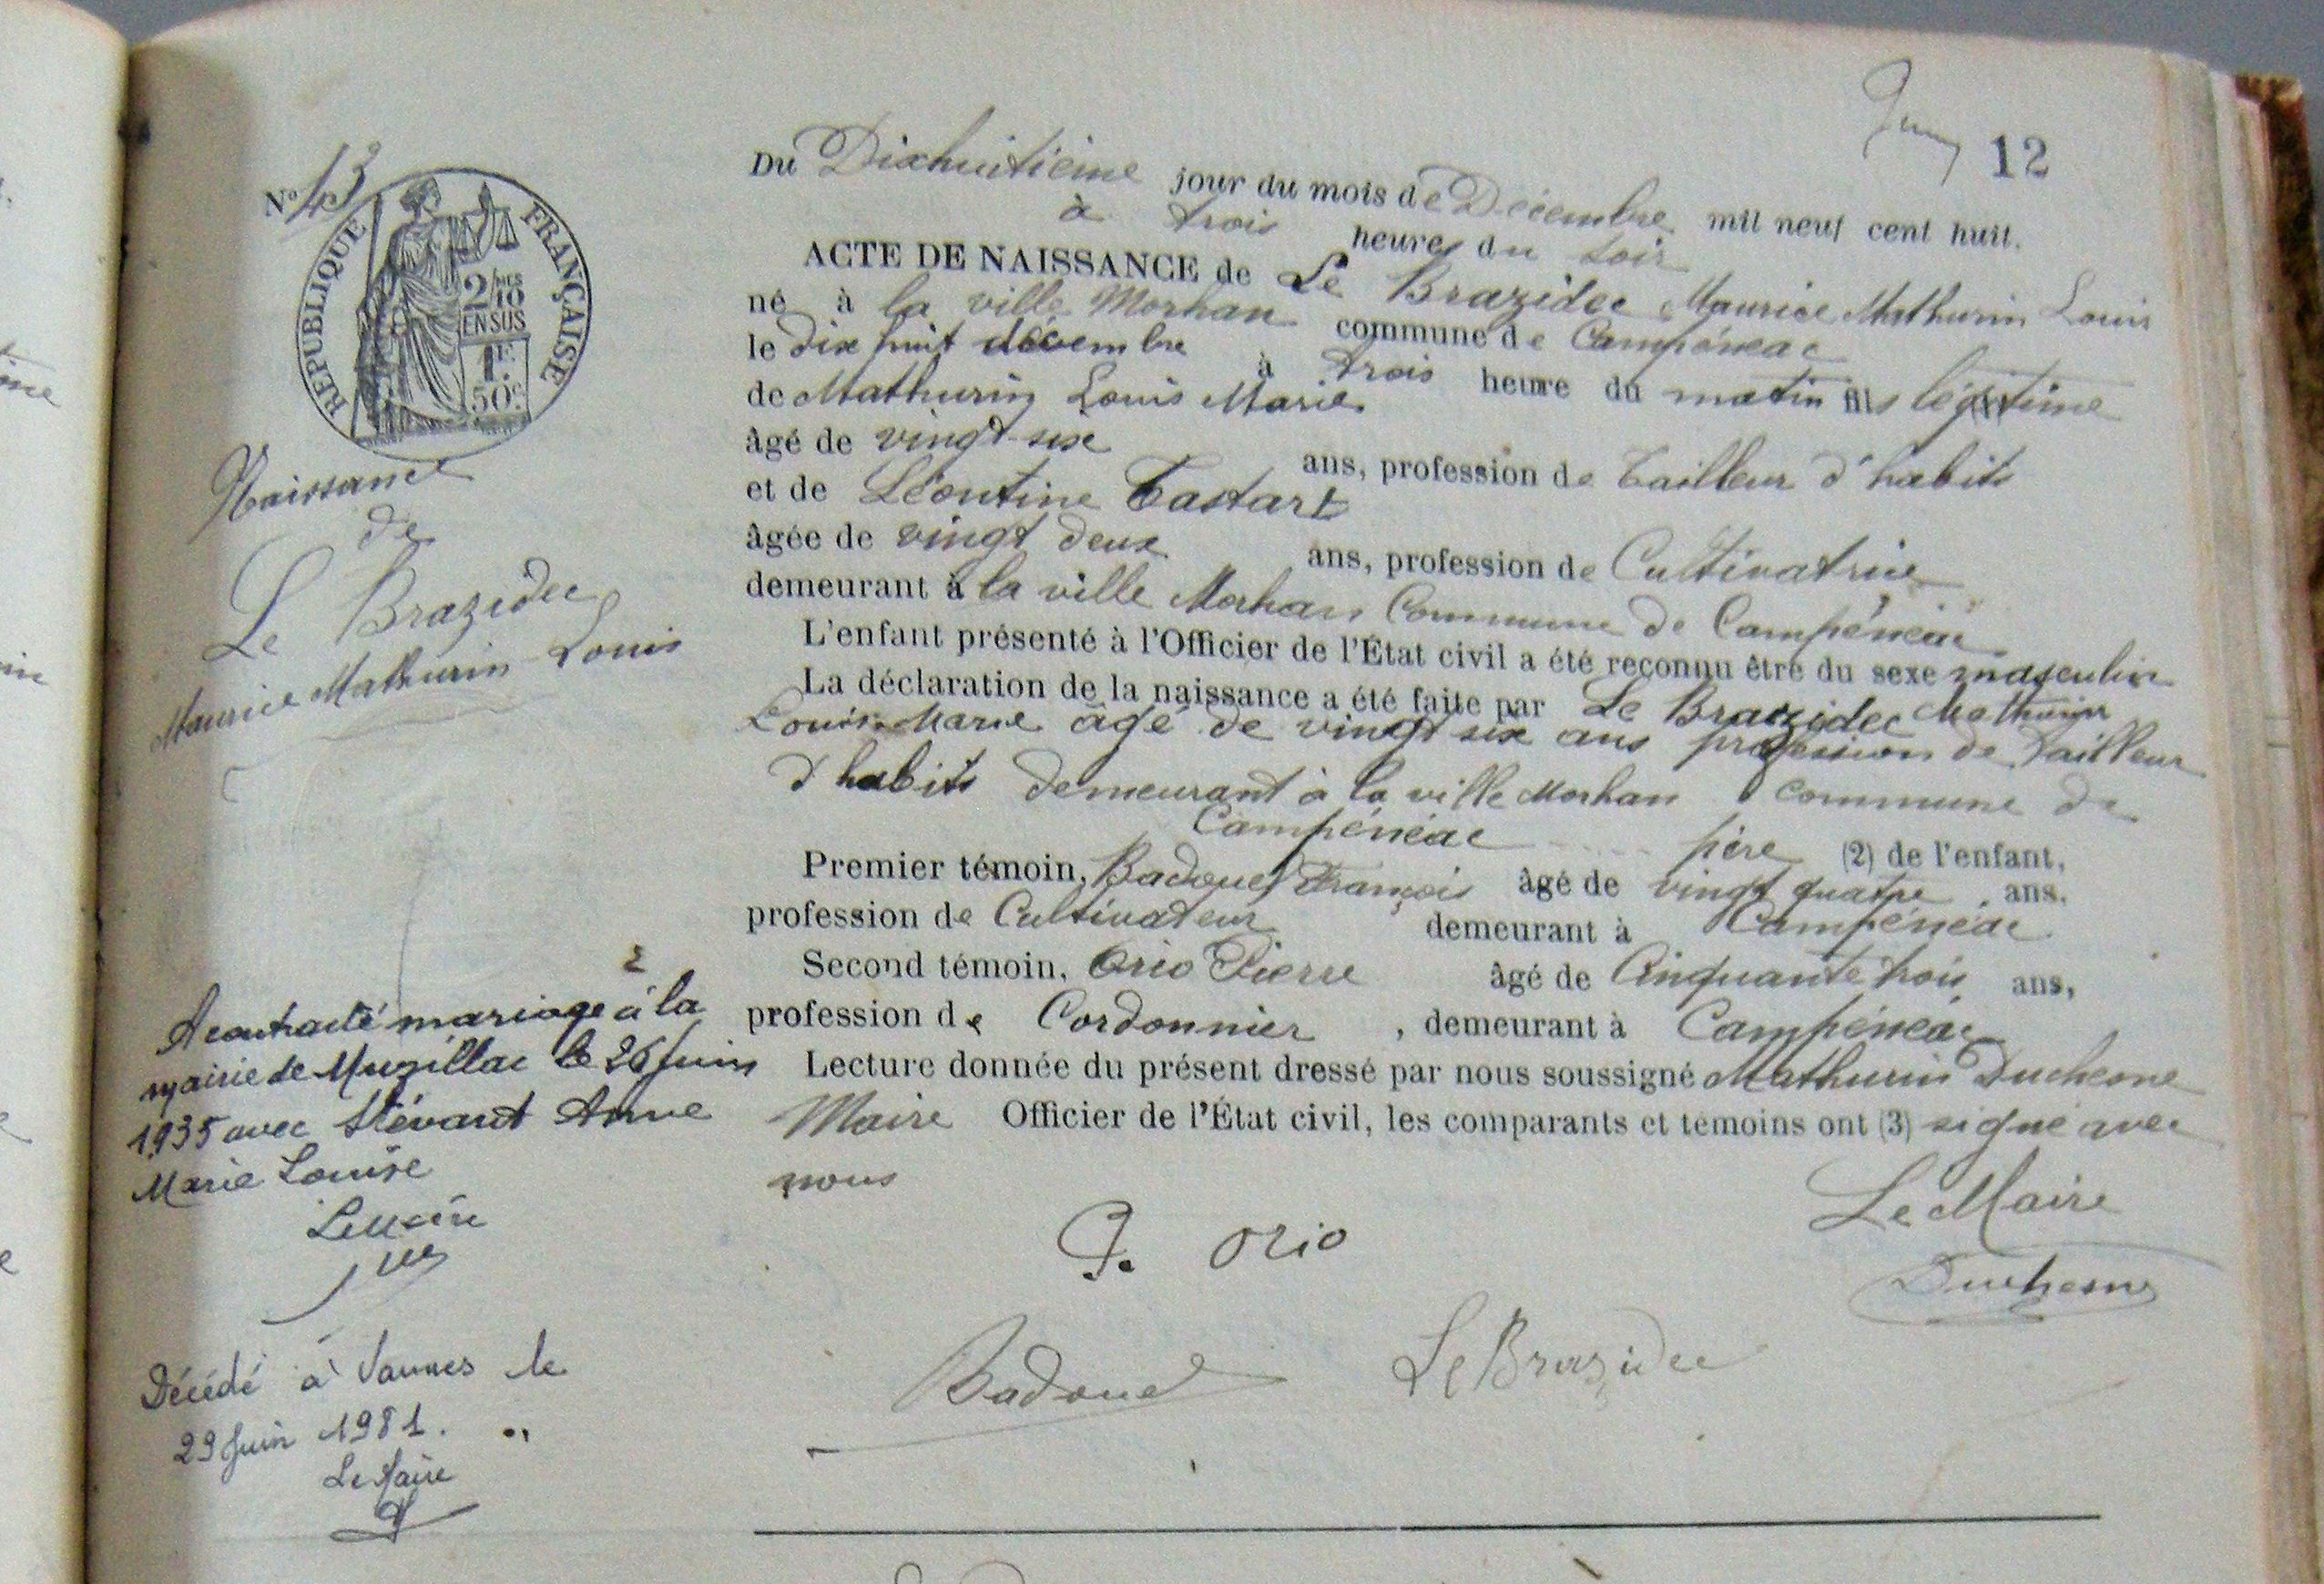 12
N° 43
RÉPUBLIQUE FRANÇAISE
2/10 MES
EN SUS
1F
50c
Naissance
de
Le Brazidec
Maurice Mathurin Louis
Du Dixhuitième jour du mois de Décembre mil neuf cent huit,
à trois heures du soir
ACTE DE NAISSANCE de Le Brazidec Maurice Mathurin Louis
né à la ville Morhan commune de Campénéac
le dix huit décembre à trois heure du matin fils légitime
de Mathurin Louis Marie
âgé de vingt-six ans, profession de tailleur d'habits
et de Léontine Tastart
âgée de vingt deux ans, profession de Cultivatrice
demeurant à la ville Morhan Commune de Campénéac
L'enfant présenté à l'Officier de l'État civil a été reconnu être du sexe masculin
La déclaration de la naissance a été faite par Le Brazidec Mathurin
Louis Marie âgé de vingt six ans profession de tailleur
d'habits demeurant à la ville Morhan commune de
Campénéac père (2) de l'enfant,
Premier témoin, Badouel François âgé de vingt quatre ans,
profession de Cultivateur demeurant à Campénéac
Second témoin, Orio Pierre âgé de Cinquante trois ans,
profession de Cordonnier, demeurant à Campénéac
Lecture donnée du présent dressé par nous soussigné Mathurin Duchesne
Maire Officier de l'État civil, les comparants et témoins ont (3) signé avec
nous
Le Maire
P. Orio
Duchesne
Badouel
Le Brazidec
A contracté mariage à la
mairie de Muzillac le 26 Juin
1935 avec Stévant Anne
Marie Louise
Le Maire
Décédé à Vannes le
29 Juin 1981.
Le Maire